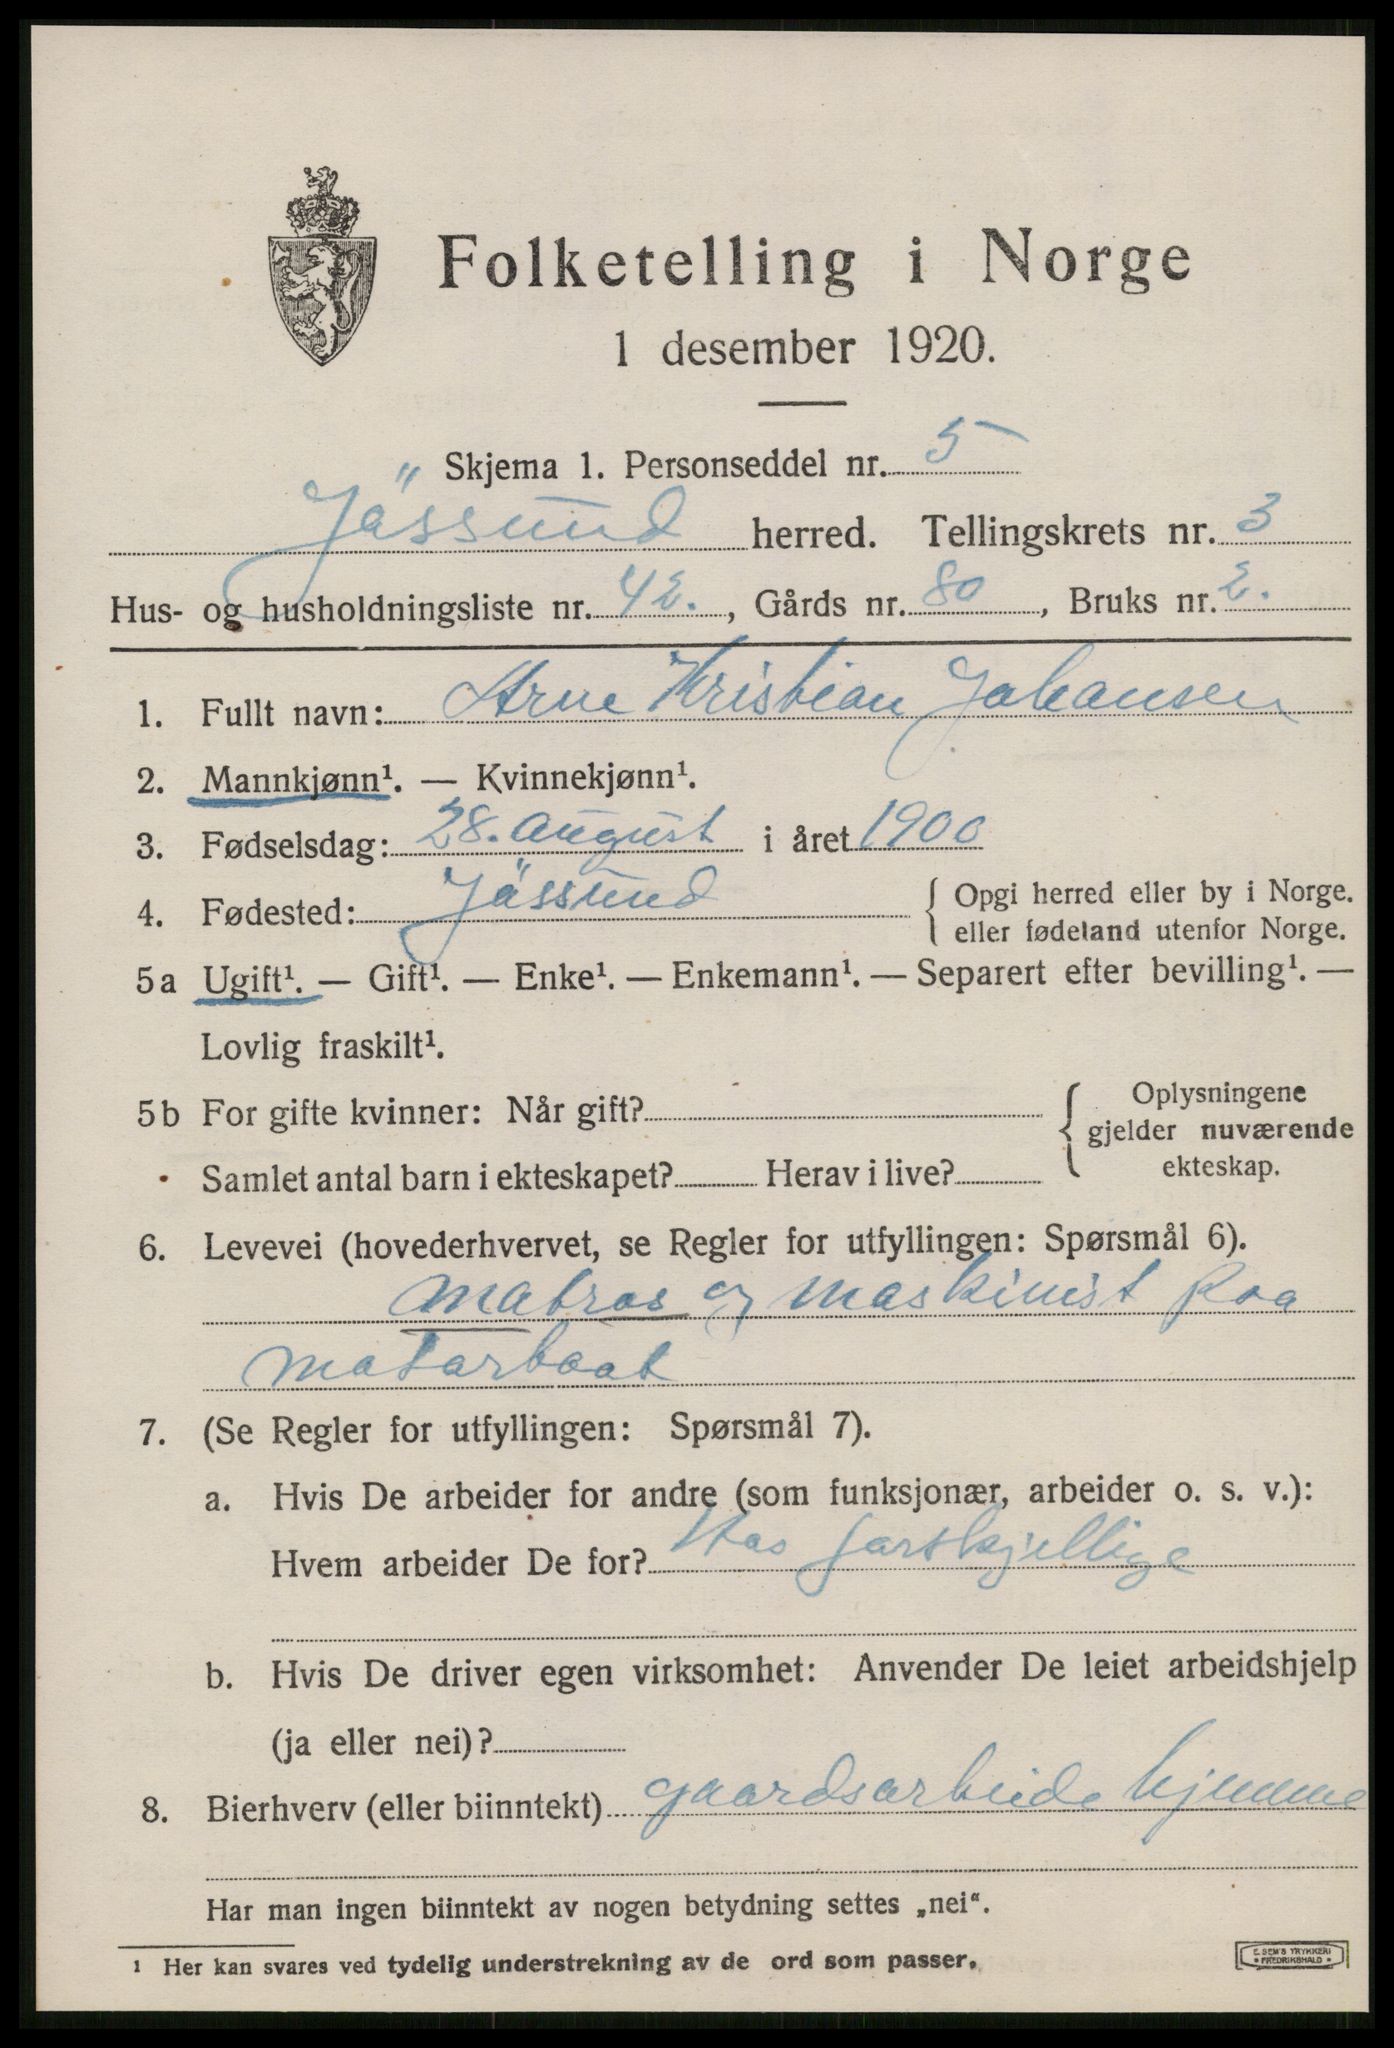 Folketelling i Norge
1 desember 1920.
Skjema 1. Personseddel nr. 5
Jössund herred. Tellingskrets nr. 3
Hus- og husholdningsliste nr. 42., Gårds nr. 80, Bruks nr. 2.
1. Fullt navn: Arne Kristian Johansen
2. Mannkjønn¹. — Kvinnekjønn¹.
3. Fødselsdag: 28. august i året 1900
4. Fødested: Jössund { Opgi herred eller by i Norge.
eller fødeland utenfor Norge.
5a Ugift¹. — Gift¹. — Enke¹. — Enkemann¹. — Separert efter bevilling¹. —
Lovlig fraskilt¹.
5b For gifte kvinner: Når gift? { Oplysningene
gjelder nuværende
ekteskap.
Samlet antal barn i ekteskapet? Herav i live?
6. Levevei (hovederhvervet, se Regler for utfyllingen: Spørsmål 6).
Matros og maskinist paa
motorbaat
7. (Se Regler for utfyllingen: Spørsmål 7).
a. Hvis De arbeider for andre (som funksjonær, arbeider o. s. v.):
Hvem arbeider De for? Hos forskjellige
b. Hvis De driver egen virksomhet: Anvender De leiet arbeidshjelp
(ja eller nei)?
8. Bierhverv (eller biinntekt) gaardsarbeide hjemme
Har man ingen biinntekt av nogen betydning settes „nei“.
¹ Her kan svares ved tydelig understrekning av de ord som passer.
E. SEM'S TRYKKERI
FREDRIKSHALD